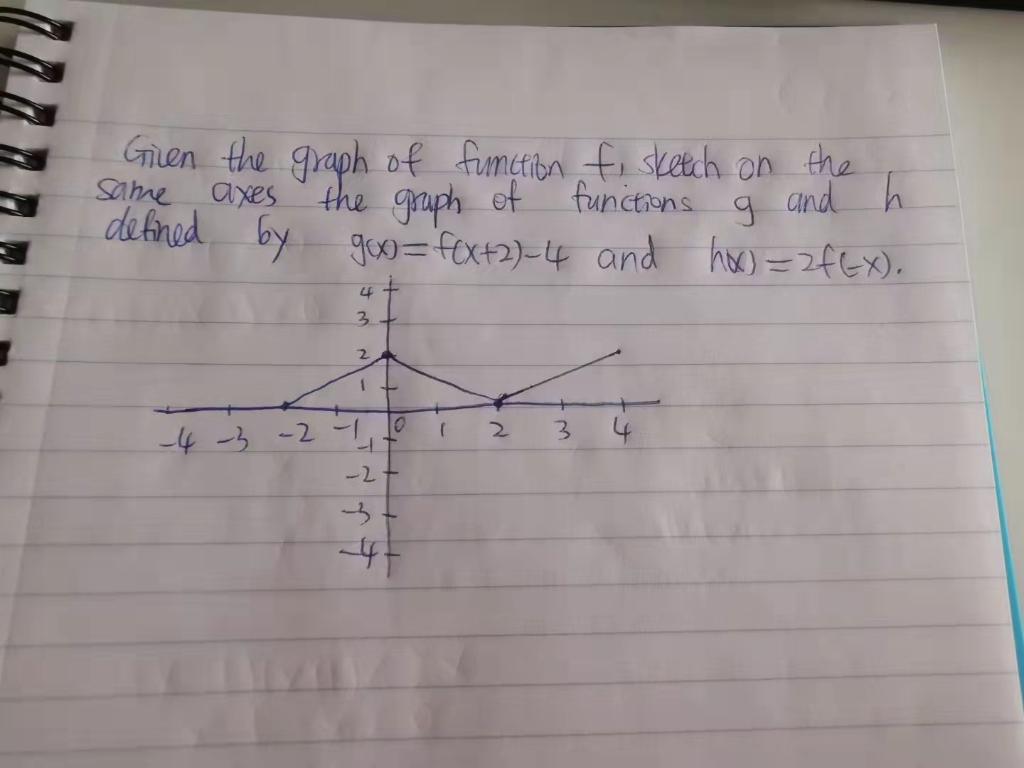 Given the graph of function f, sketch on the
same axes the graph of functions g and h
defined by g(x)=f(x+2)-4 and h(x)=2f(-x).
4
3
2
1
-4 -3 -2 -1 0 1 2 3 4
-1
-2
-3
-4